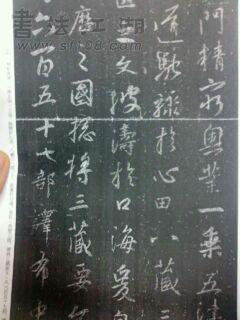 書法江湖
www.sf108.com
門精窮奧業一乘五律
道馳驟於心田八藏三
篋之文波濤於口海爰自
歷之國總將三藏要文
六百五十七部譯布中